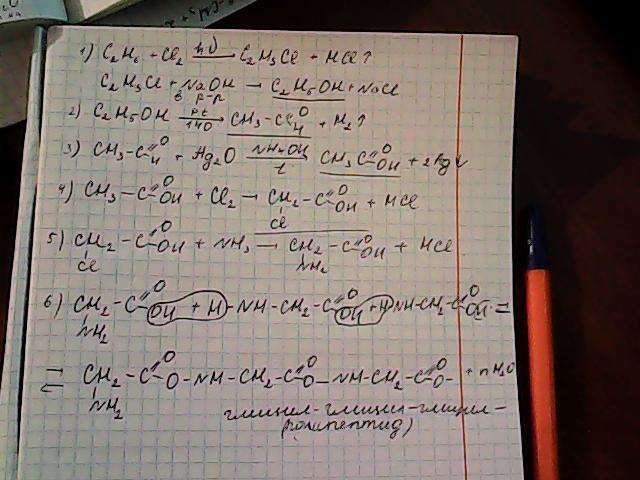 1) C₂H₆ + Cl₂ hν→ C₂H₅Cl + HCl↑
C₂H₅Cl + NaOH → C₂H₅OH + NaCl
в р-р
2) C₂H₅OH Pt→ 140 CH₃-C=O H + H₂↑
3) CH₃-C=O H + Ag₂O NH₄OH→ t CH₃C=O OH + 2Ag↓
4) CH₃-C=O OH + Cl₂ → CH₂-C=O OH + HCl
Cl
5) CH₂-C=O OH + NH₃ → CH₂-C=O OH + HCl
Cl NH₂
6) CH₂-C=O OH + H-NH-CH₂-C=O OH + H NH-CH₂-C=O OH ⇌
NH₂
⇌ CH₂-C=O O-NH-CH₂-C=O O-NH-CH₂-C=O O- + nH₂O
NH₂
глицил-глицил-глицил-
полипептид)